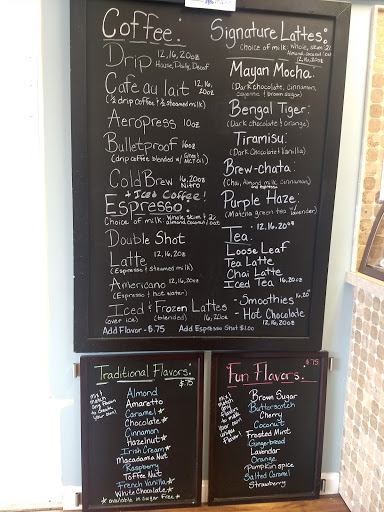 Coffee:
Drip 12, 16, 20oz
House, Daily, Decaf
Cafe au lait 12, 16, 20oz
(½ drip coffee ½ steamed milk)
Aeropress 10oz
Bulletproof 16oz
(drip coffee blended w/ Ghee & MCT oil)
Cold Brew 16, 20oz
Nitro
+ Iced Coffee!
Espresso:
Choice of milk: Whole, Skim & 2%
Almond, coconut / oat
Double Shot
Latte 12, 16, 20z
(Espresso + steamed milk)
Americano 12, 16, 20z
(Espresso + hot water)
Iced & Frozen Lattes
(over ice) (blended) 16, 20z
Add Flavor - $.75 Add Espresso Shot $1.00
Signature Lattes:
Choice of milk: Whole, skim, 2%
Almond, coconut / oat
12, 16, 20z
Mayan Mocha:
(Dark chocolate, cinnamon,
cayenne + brown sugar)
Bengal Tiger:
(Dark chocolate + orange)
Tiramisu:
(Dark Chocolate + Vanilla)
Brew-chata:
(Chai, Almond milk, cinnamon)
Purple Haze:
(Matcha green tea w/ lavender)
Tea: 12, 16, 20z
Loose Leaf
Tea Latte
Chai Latte
Iced Tea 16, 20z
- Smoothies 16, 20z
- Hot Chocolate
12, 16, 20z
Traditional Flavors:
$.75
Mix & Match any flavor to create your own!
Almond
Amaretto
Caramel ★
Chocolate ★
Cinnamon
Hazelnut ★
Irish Cream ★
Macadamia Nut
Raspberry
Toffee Nut
French Vanilla ★
White Chocolate ★
★ available in Sugar Free ★
Fun Flavors:
$.75
Mix & match any to make your own unique Flavor!
Brown Sugar
Butterscotch
Cherry
Coconut
Frosted Mint
Gingerbread
Lavendar
Orange
Pumpkin spice
Salted Caramel
Strawberry